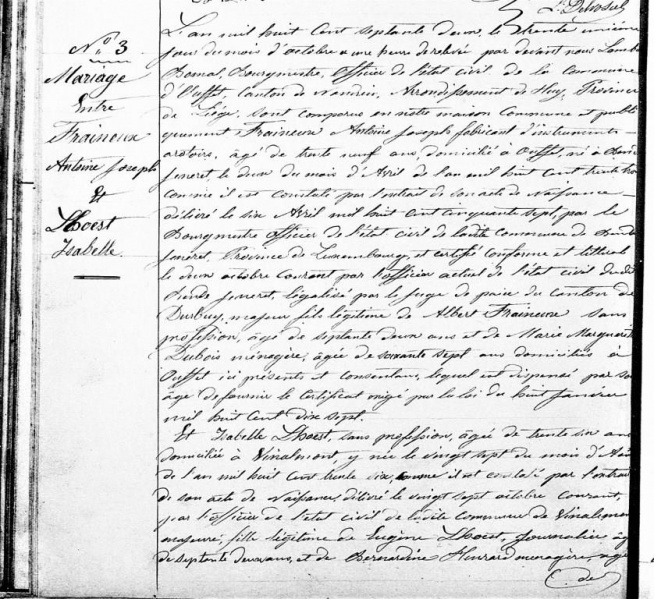 L. Delvosal
N° 3
Mariage
Entre
Fraineux
Antoine Joseph
Et
Lhoest
Isabelle.
L'an mil huit Cent Septante deux, le trente unième
jour du mois d'octobre a une heure de relevée par devant nous Lambert
Bonal, Bourgmestre, Officier de l'état civil de la commune
d'Ouffet, Canton de Nandrin, Arrondissement de Huy, Province
de Liége, sont comparus en notre maison Commune et publi
quement Fraineux Antoine Joseph fabricant d'instruments
aratoire, âgé de trente neuf ans, domicilié à Ouffet, né à Bende
Jeneret, le deux du mois d'Avril de l'an mil huit cent trente trois
comme il est constaté par l'extrait de son acte de Naissance
délivré le six Avril mil huit cent cinquante sept, par le
Bourgmestre Officier de l'état civil de ladite commune de Bende
Jeneret, Province de Luxembourg, et certifié conforme et littéral
le deux octobre Courant par l'officier actuel de l'état civil du dit
Bende Jeneret, légalisé par le Juge de paix du canton de
Durbuy, majeur fils légitime de Albert Fraineux sans
profession, âgé de septante deux ans et de Marie Marguerite
Dubois ménagère, âgée de soixante sept ans domiciliés à
Ouffet ici présents et consentans, lequel est dispensé par son
âge de fournir le certificat exigé par la loi du huit Janvier
mil huit Cent dix sept.
Et Isabelle Lhoest, sans profession, âgée de trente six ans
domiciliée à Vinalmont, y née le vingt sept du mois d'
de l'an mil huit cent trente six, comme il est constaté par l'extrait
de son acte de Naissance, délivré le vingt sept octobre courant,
par l'officier de l'état civil de la dite commune de Vinalmont
majeure, fille légitime de Eugène Lhoest, Journalier âgé
de septante deux ans, et de Bernardine Henrard ménagère, âgée
de